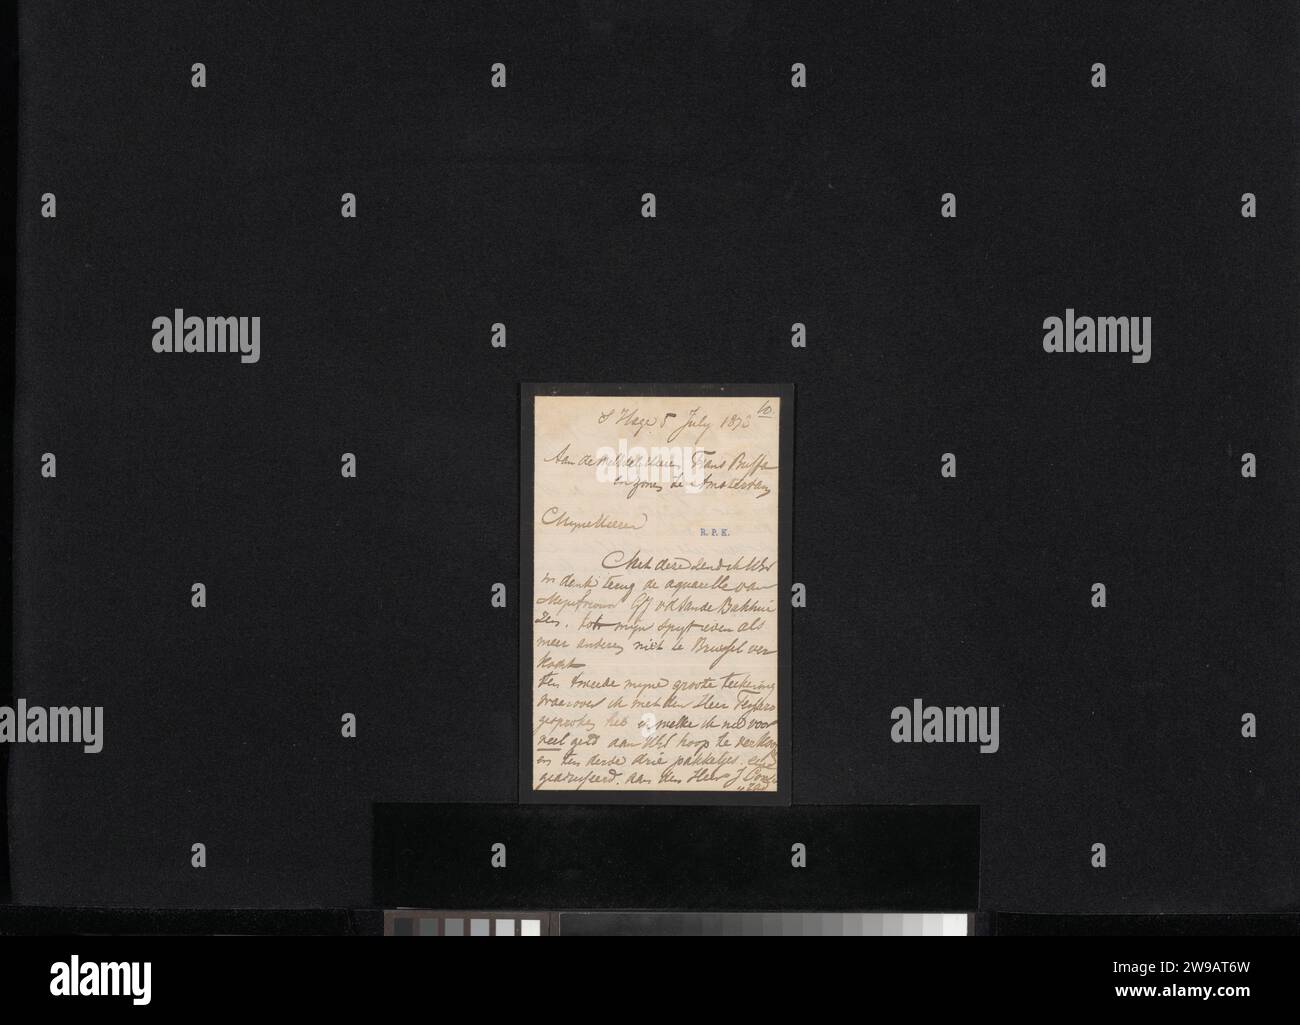 60
S Hage 5 July 1873
Aan de WelEdele Heeren Frans Buffa
en zonen te Amsterdam
Mijne Heeren
R.P.K.
Met deze zend ik UEd
en dank terug de aquarelle van
Mejufvrouw GJ vd Sande Bakhui
zen. tot mijn spijt even als
meer andere niet te Brussel ver
kocht
ten tweede mijne groote teekening
waarover ik met den Heer
gesproken heb en welke ik nu voor
veel geld aan UEd hoop te verkoo
en ten derde drie pakketjes
geadresseerd. aan den Heer J
alamy
alamy
alamy
alamy
alamy
a
alamy
Image ID: 2W9AT6W
www.alamy.com